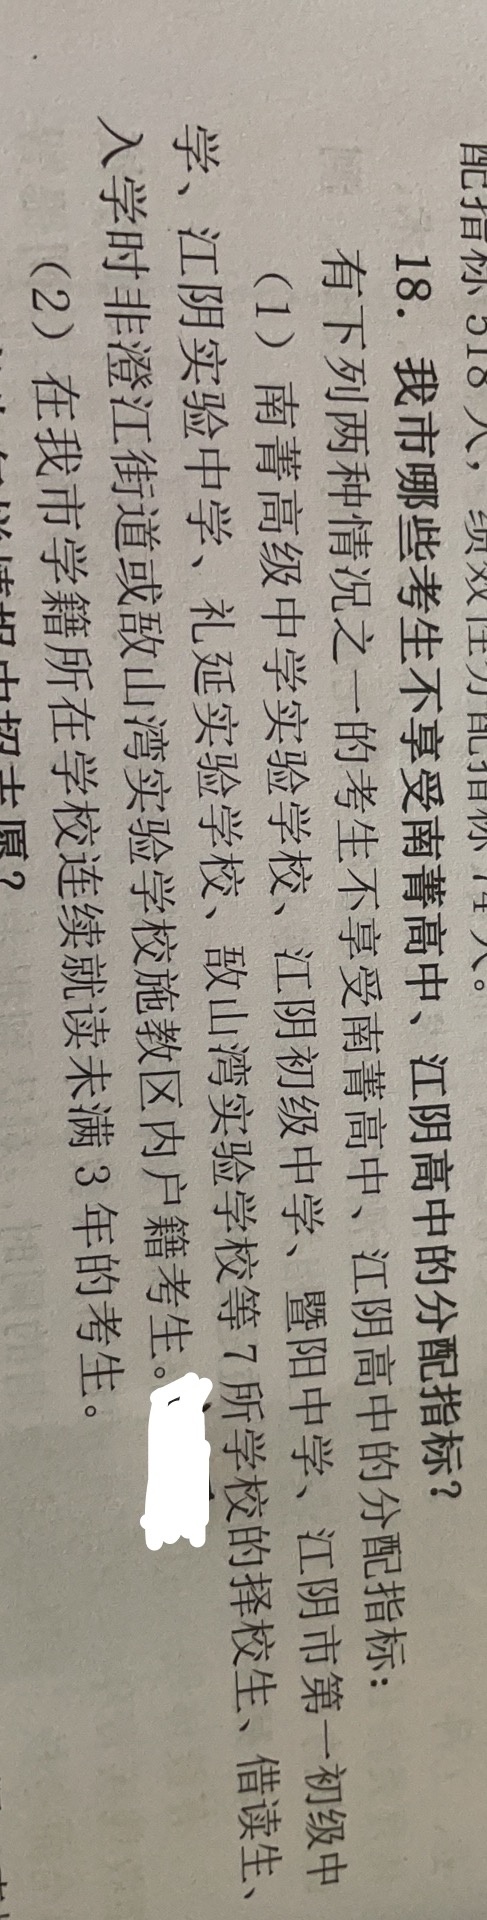 配指标 518 人，绩效性分配指标 74 人。
18. 我市哪些考生不享受南菁高中、江阴高中的分配指标？
有下列两种情况之一的考生不享受南菁高中、江阴高中的分配指标：
（1）南菁高级中学实验学校、江阴初级中学、暨阳中学、江阴市第一初级中
学、江阴实验中学、礼延实验学校、敔山湾实验学校等 7 所学校的择校生、借读生、
入学时非澄江街道或敔山湾实验学校施教区内户籍考生。
（2）在我市学籍所在学校连续就读未满 3 年的考生。
填报中招志愿？